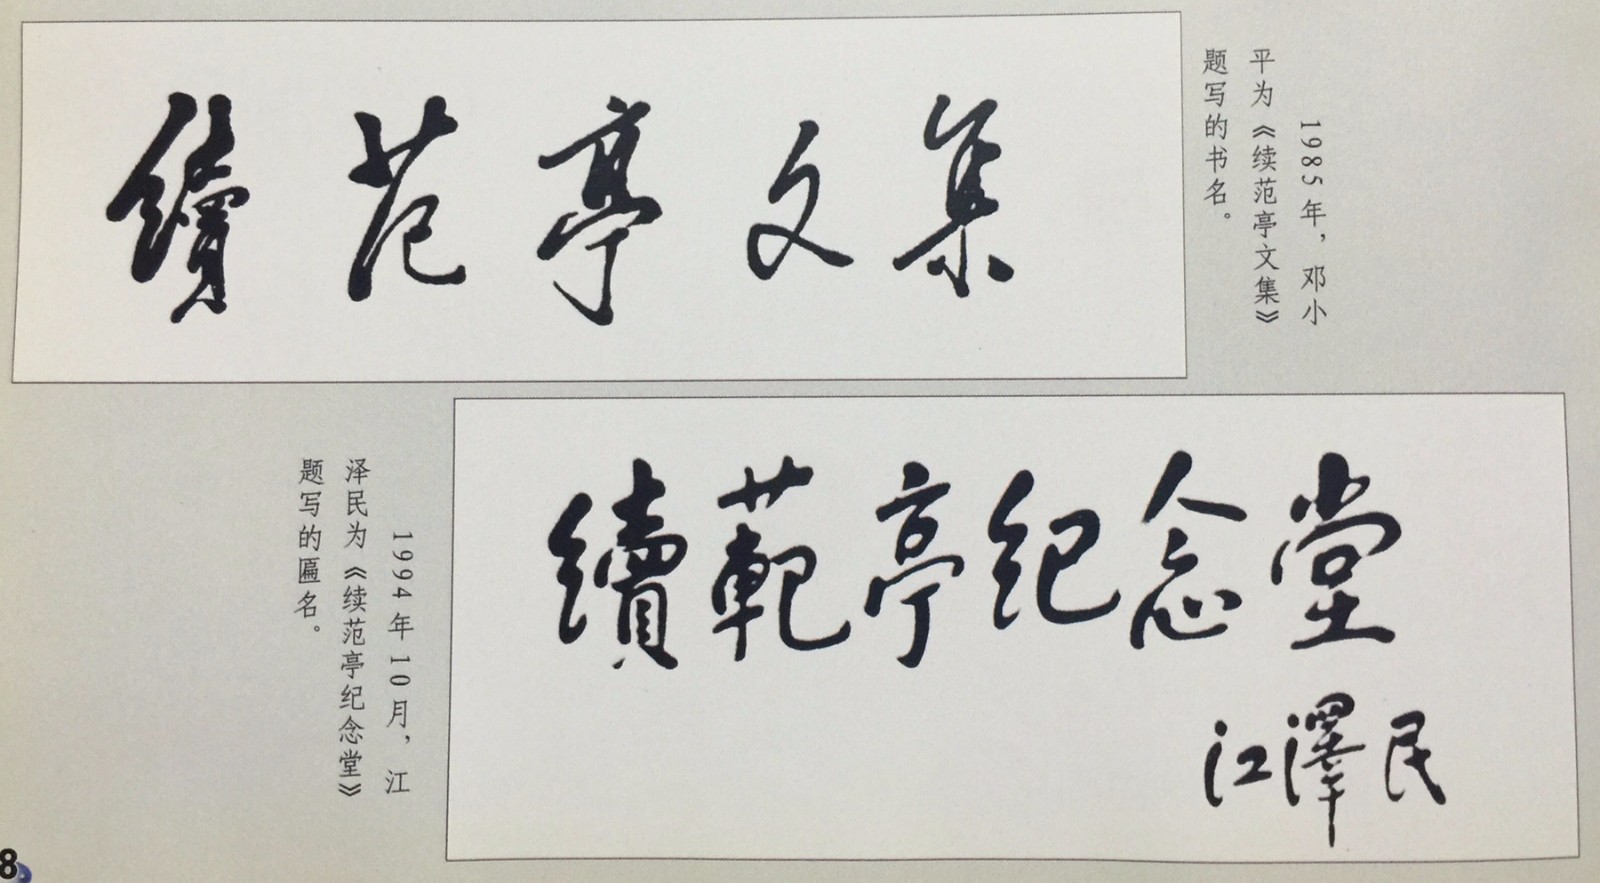 續范亭文集
1985年，邓小
平为《续范亭文集》
题写的书名。
續範亭纪念堂
江澤民
1994年10月，江
泽民为《续范亭纪念堂》
题写的匾名。
8